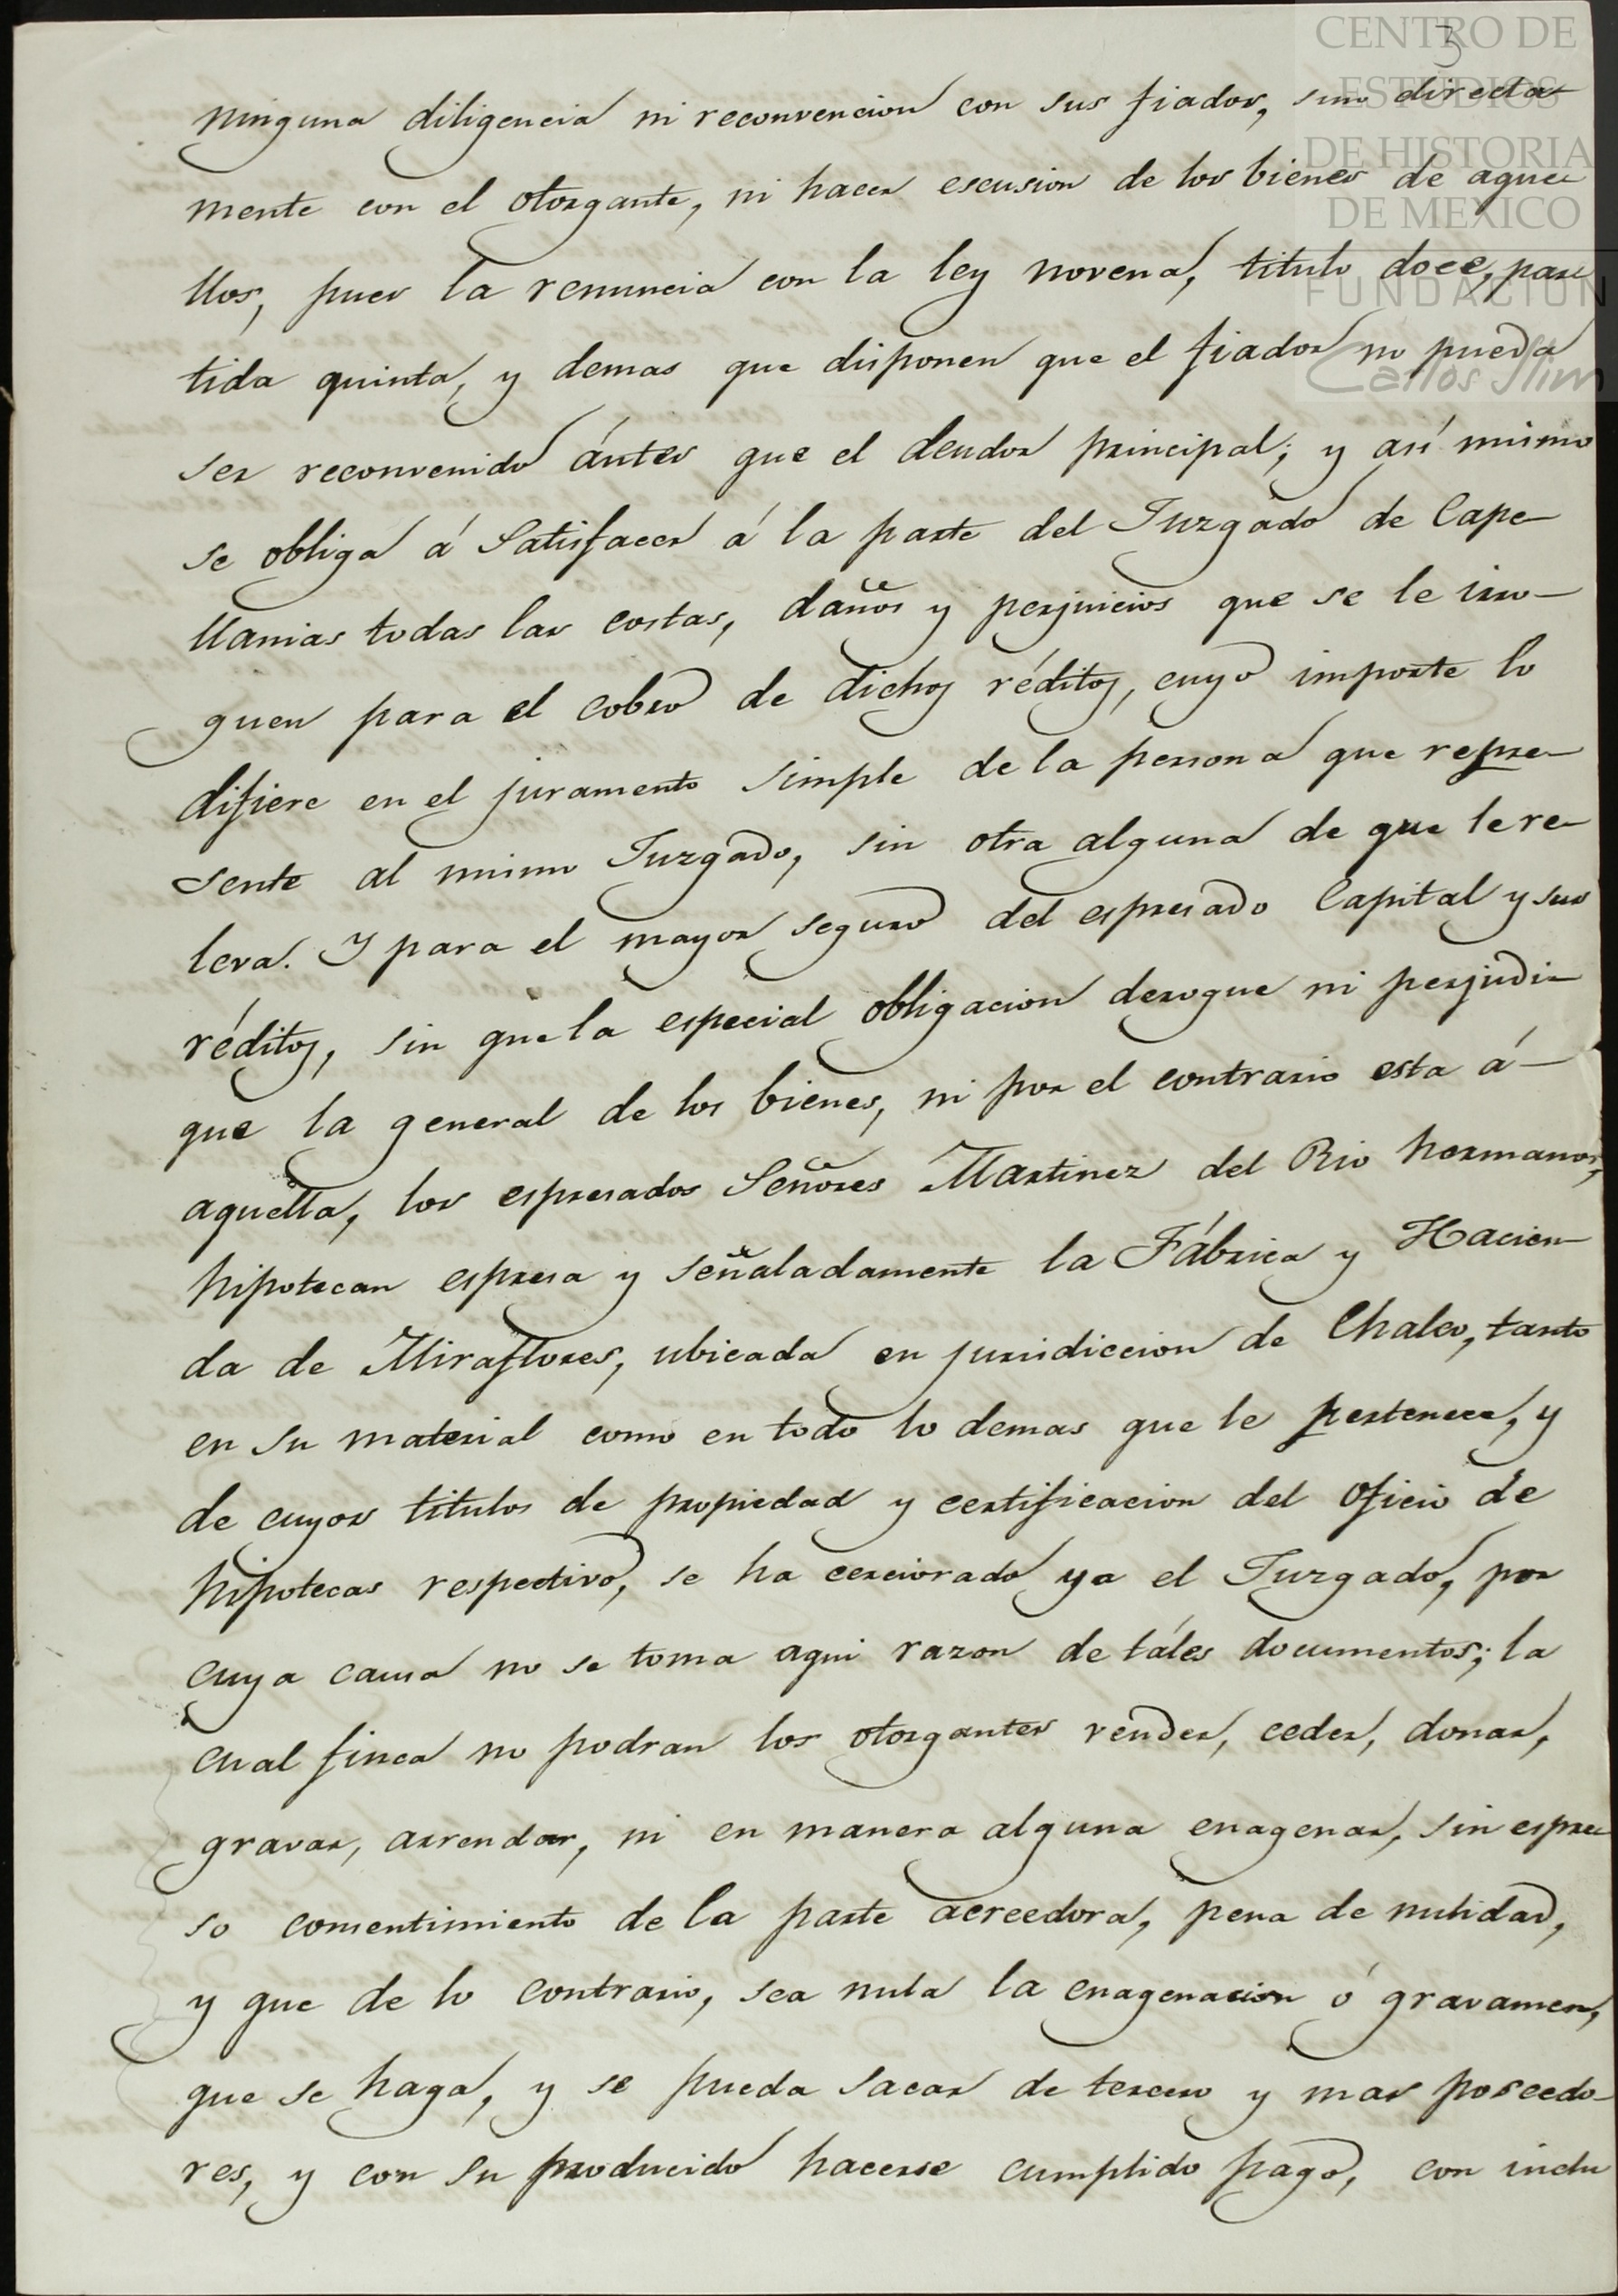 CENTRO DE
ESTUDIOS
DE HISTORIA
DE MEXICO
FUNDACION
Carlos Slim
3
ninguna diligencia ni reconvencion con sus fiador, sino directa-
mente con el otorgante, ni hacer escusion de los bienes de aque-
llos, pues la renuncia con la ley novena, titulo doce, par-
tida quinta, y demas que disponen que el fiador no pueda
ser reconvenido ántes que el deudor principal; y así mismo
se obliga á satisfacer á la parte del Juzgado de Cape-
llanias todas las costas, daños y perjuicios que se le irro-
guen para el cobro de dichos réditos, cuyo importe lo
difiere en el juramento simple de la persona que repre-
sente al mismo Juzgado, sin otra alguna de que le re-
leva. Y para el mayor seguro del espresado Capital y sus
réditos, sin que la especial obligacion derogue ni perjudi-
que la general de los bienes, ni por el contrario esta á-
aquella, los espresados Señores Martinez del Rio hermanos,
hipotecan espresa y señaladamente la Fábrica y Hacien-
da de Miraflores, ubicada en jurisdiccion de Chalco, tanto
en su material como en todo lo demas que le pertenece, y
de cuyos titulos de propiedad y certificacion del oficio de
hipotecas respectivo, se ha cerciorado ya el Juzgado, por
cuya causa no se toma aqui razon de táles documentos; la
cual finca no podran los otorgantes vender, ceder, donar,
gravar, arrendar, ni en manera alguna enagenar, sin espre-
so consentimiento de la parte acreedora, pena de nulidad,
y que de lo contrario, sea nula la enagenacion ó gravamen,
que se haga, y se pueda sacar de tercero y mas poseedo-
res, y con su producido hacerse cumplido pago, con inclu